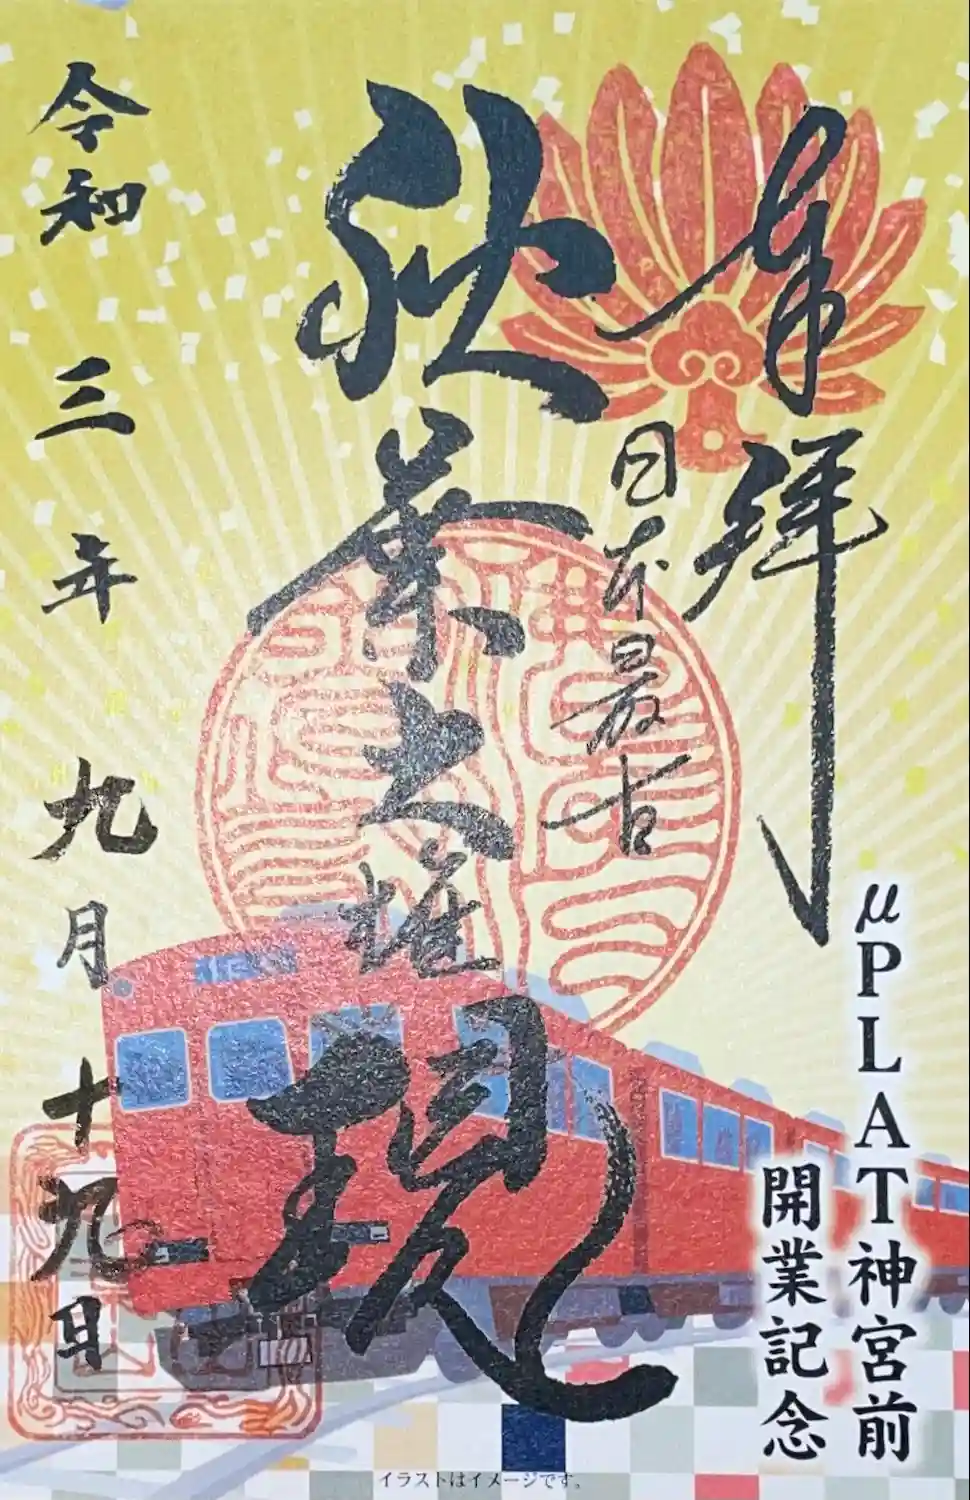 奉拝
日本最古
秋葉大権現
令和三年九月十九日
μPLAT神宮前
開業記念
イラストはイメージです。